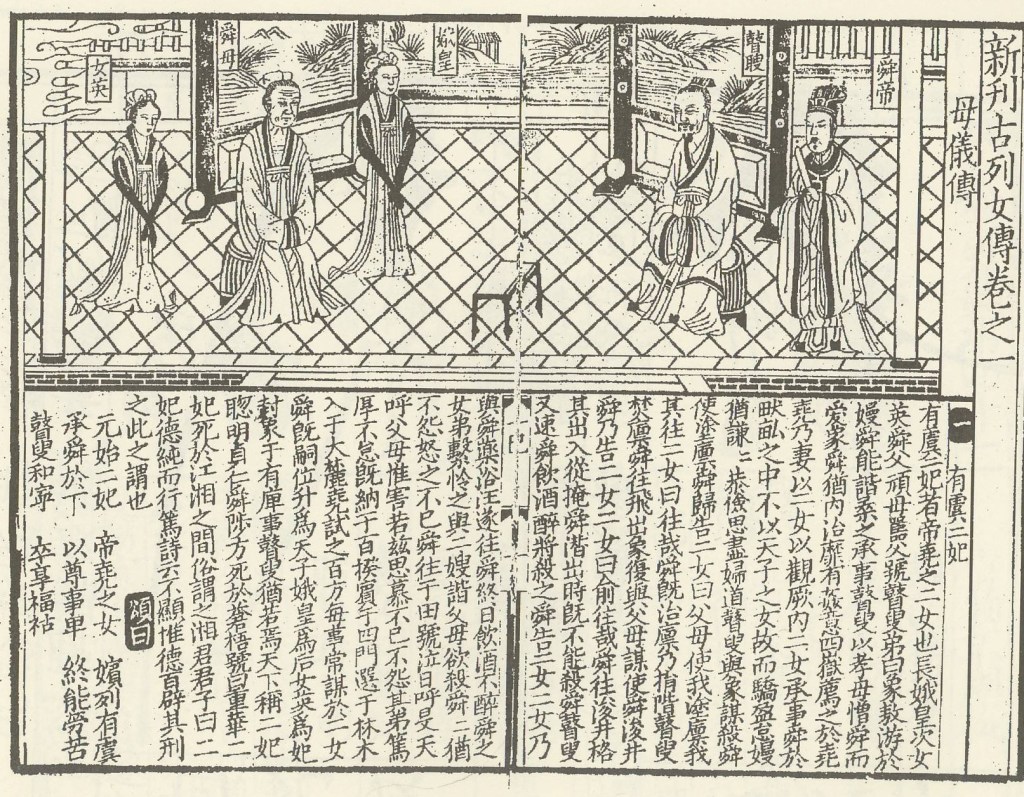 新刊古列女傳卷之一
母儀傳
舜帝
瞽瞍
娥皇
舜母
女英
一 有虞二妃
有虞二妃者帝堯之二女也長娥皇次女
英舜父頑母嚚父號瞽叟弟曰象敖游於
嫚舜能諧柔之承事瞽叟以孝母憎舜而
愛象舜猶內治靡有姦意四嶽薦之於堯
堯乃妻以二女以觀厥內二女承事舜於
畎畝之中不以天子之女故而驕盈怠嫚
猶謙二恭儉思盡婦道瞽叟與象謀殺舜
使塗廩舜歸告二女曰父母使我塗廩我
其往二女曰往哉舜既治廩乃捐階瞽叟
焚廩舜往飛出象復與父母謀使舜浚井
舜乃告二女二女曰俞往哉舜往浚井格
其出入從掩舜潛出時既不能殺舜瞽叟
又速舜飲酒醉將殺之舜告二女二女乃
與舜藥浴汪遂往舜終日飲酒不醉舜之
女弟繫憐之與二嫂諧父母欲殺舜二猶
不怨怒之不已舜往于田號泣日呼旻天
呼父母惟害若茲思慕不已不怨其弟篤
厚不怠既納于百揆賓于四門選于林木
入于大麓堯試之百方每事常謀於二女
舜既嗣位升為天子娥皇為后女英為妃
封象于有庳事瞽叟猶若焉天下稱二妃
聰明貞仁舜陟方死於蒼梧號曰重華二
妃死於江湘之間俗謂之湘君君子曰二
妃德純而行篤詩云不顯惟德百辟其刑
之此之謂也
頌曰
元始二妃 帝堯之女 嬪列有虞
承舜於下 以尊事卑 終能勞苦
瞽叟和寧 卒享福祜